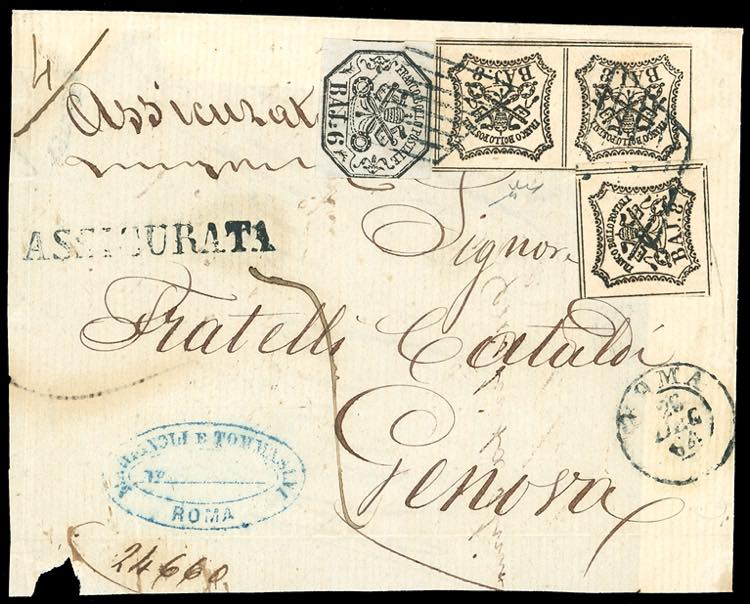 4
Assicurat
FRANCO BOLLO POSTALE
BAJ: 6
FRANCO BOLLO POSTALE
BAJ: 8
FRANCO BOLLO POSTALE
BAJ: 8
FRANCO BOLLO POSTALE
BAJ: 8
ASSICURATA
Signori
Fratelli Cataldi
Genova
ROMA
26
DEC
64
E TOMMASINI
N°
ROMA
24660